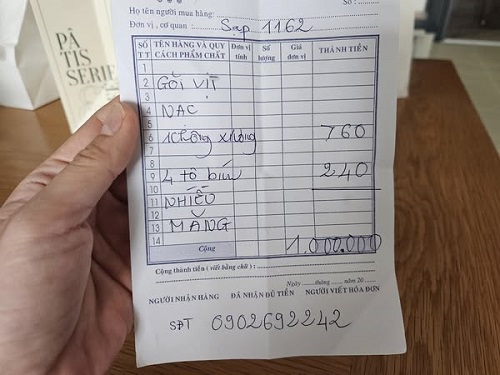 PÂ
TIS
SERIE
Số :
Họ tên người mua hàng:
Đơn vị , cơ quan : Sạp 1162
SỐ TT TÊN HÀNG VÀ QUY CÁCH PHẨM CHẤT Đơn vị tính Số lượng Giá đơn vị THÀNH TIỀN
1
2 GỎI VỊT
3
4 NẠC
5
6 không xương 760
7
8
9 4 tô bún 240
10
11 NHIỀU
12
13 MĂNG
14
Cộng 1.000.000
Cộng thành tiền ( viết bằng chữ ) :
Ngày tháng năm 20
NGƯỜI NHẬN HÀNG ĐÃ NHẬN ĐỦ TIỀN NGƯỜI VIẾT HÓA ĐƠN
SĐT 0902692242